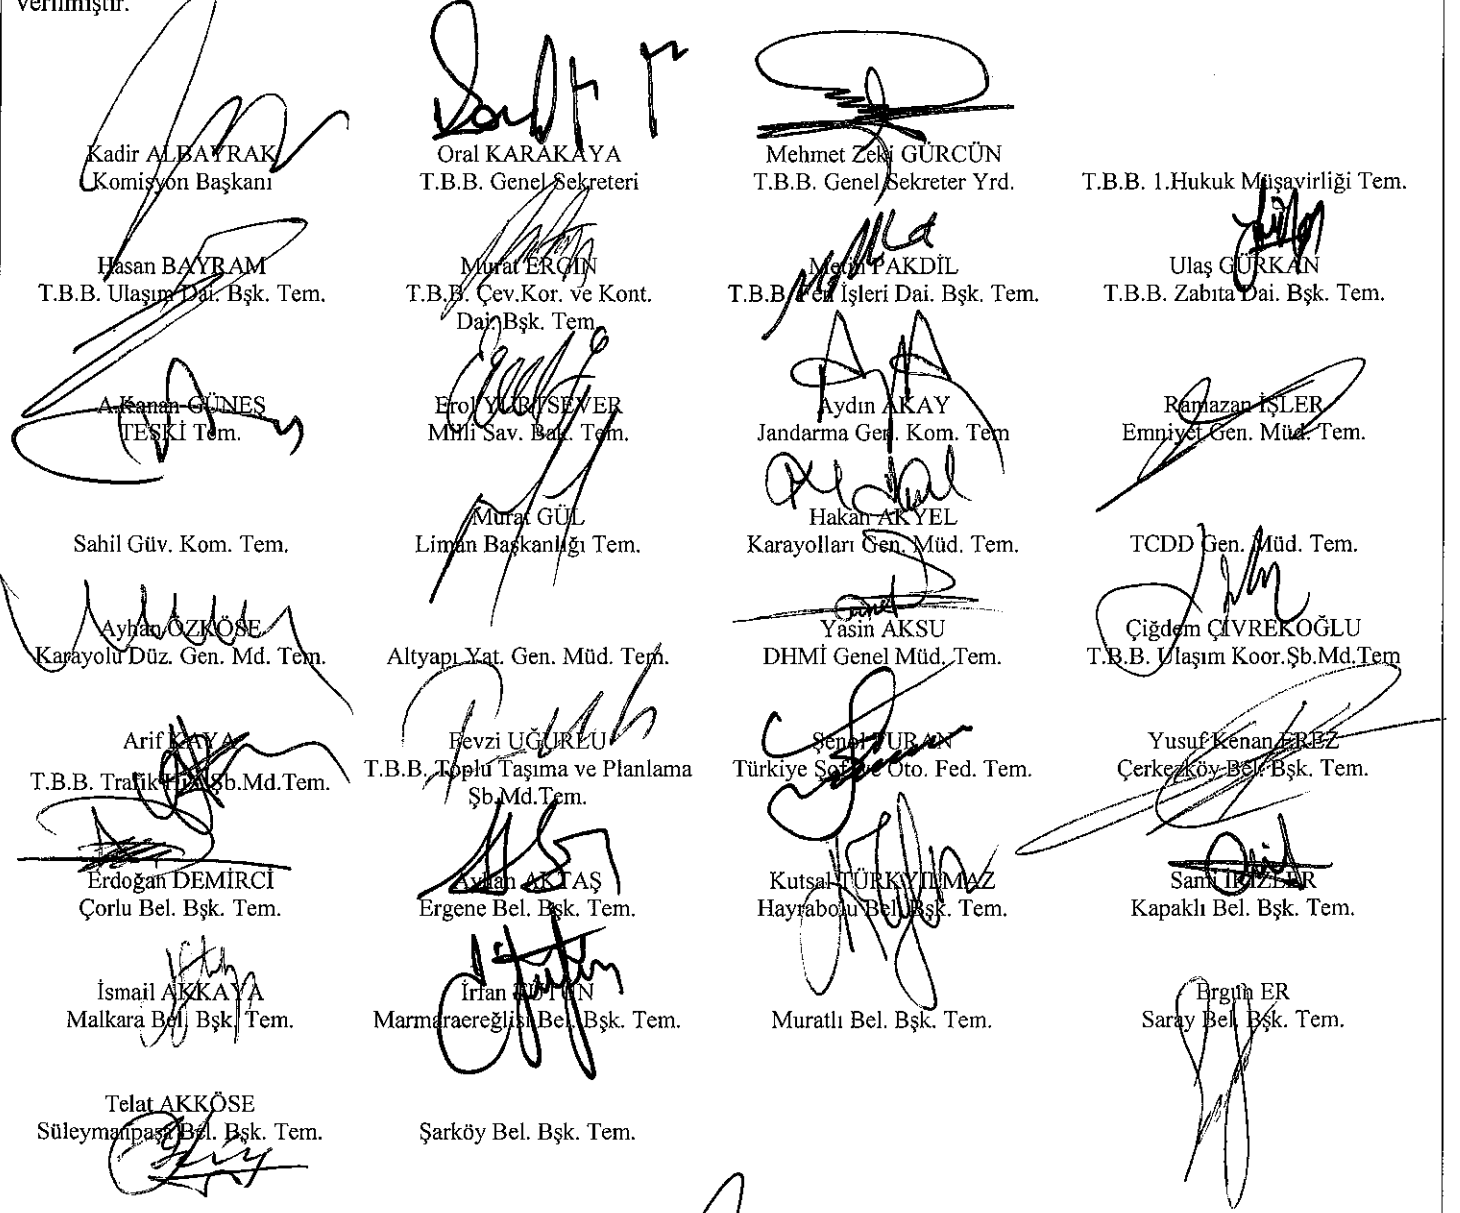 verilmiştir.
Kadir ALBAYRAK
Komisyon Başkanı
Oral KARAKAYA
T.B.B. Genel Sekreteri
Mehmet Zeki GÜRCÜN
T.B.B. Genel Sekreter Yrd.
T.B.B. 1.Hukuk Müşavirliği Tem.
Hasan BAYRAM
T.B.B. Ulaşım Dai. Bşk. Tem.
Murat ERGİN
T.B.B. Çev.Kor. ve Kont.
Dai. Bşk. Tem.
Metin PAKDİL
T.B.B. Fen İşleri Dai. Bşk. Tem.
Ulaş GÜRKAN
T.B.B. Zabıta Dai. Bşk. Tem.
A.Kanan GÜNEŞ
TESKİ Tem.
Erol YURTSEVER
Milli Sav. Bak. Tem.
Aydın AKAY
Jandarma Gen. Kom. Tem
Ramazan İŞLER
Emniyet Gen. Müd. Tem.
Sahil Güv. Kom. Tem.
Murat GÜL
Liman Başkanlığı Tem.
Hakan AKYEL
Karayolları Gen. Müd. Tem.
TCDD Gen. Müd. Tem.
Ayhan ÖZKÖSE
Karayolu Düz. Gen. Md. Tem.
Altyapı Yat. Gen. Müd. Tem.
Yasin AKSU
DHMİ Genel Müd. Tem.
Çiğdem ÇİVREKOĞLU
T.B.B. Ulaşım Koor.Şb.Md.Tem
Arif KAYA
T.B.B. Trafik Hiz. Şb.Md.Tem.
Fevzi UĞURLU
T.B.B. Toplu Taşıma ve Planlama
Şb.Md.Tem.
Şenol TURAN
Türkiye Şof. ve Oto. Fed. Tem.
Yusuf Kenan EREZ
Çerkezköy Bel. Bşk. Tem.
Erdoğan DEMİRCİ
Çorlu Bel. Bşk. Tem.
Ayhan AKTAŞ
Ergene Bel. Bşk. Tem.
Kutsal TÜRKYILMAZ
Hayrabolu Bel. Bşk. Tem.
Sami İKİZLER
Kapaklı Bel. Bşk. Tem.
İsmail AKKAYA
Malkara Bel. Bşk. Tem.
İrfan TÜTÜN
Marmaraereğlisi Bel. Bşk. Tem.
Muratlı Bel. Bşk. Tem.
Ergün ER
Saray Bel. Bşk. Tem.
Telat AKKÖSE
Süleymanpaşa Bel. Bşk. Tem.
Şarköy Bel. Bşk. Tem.